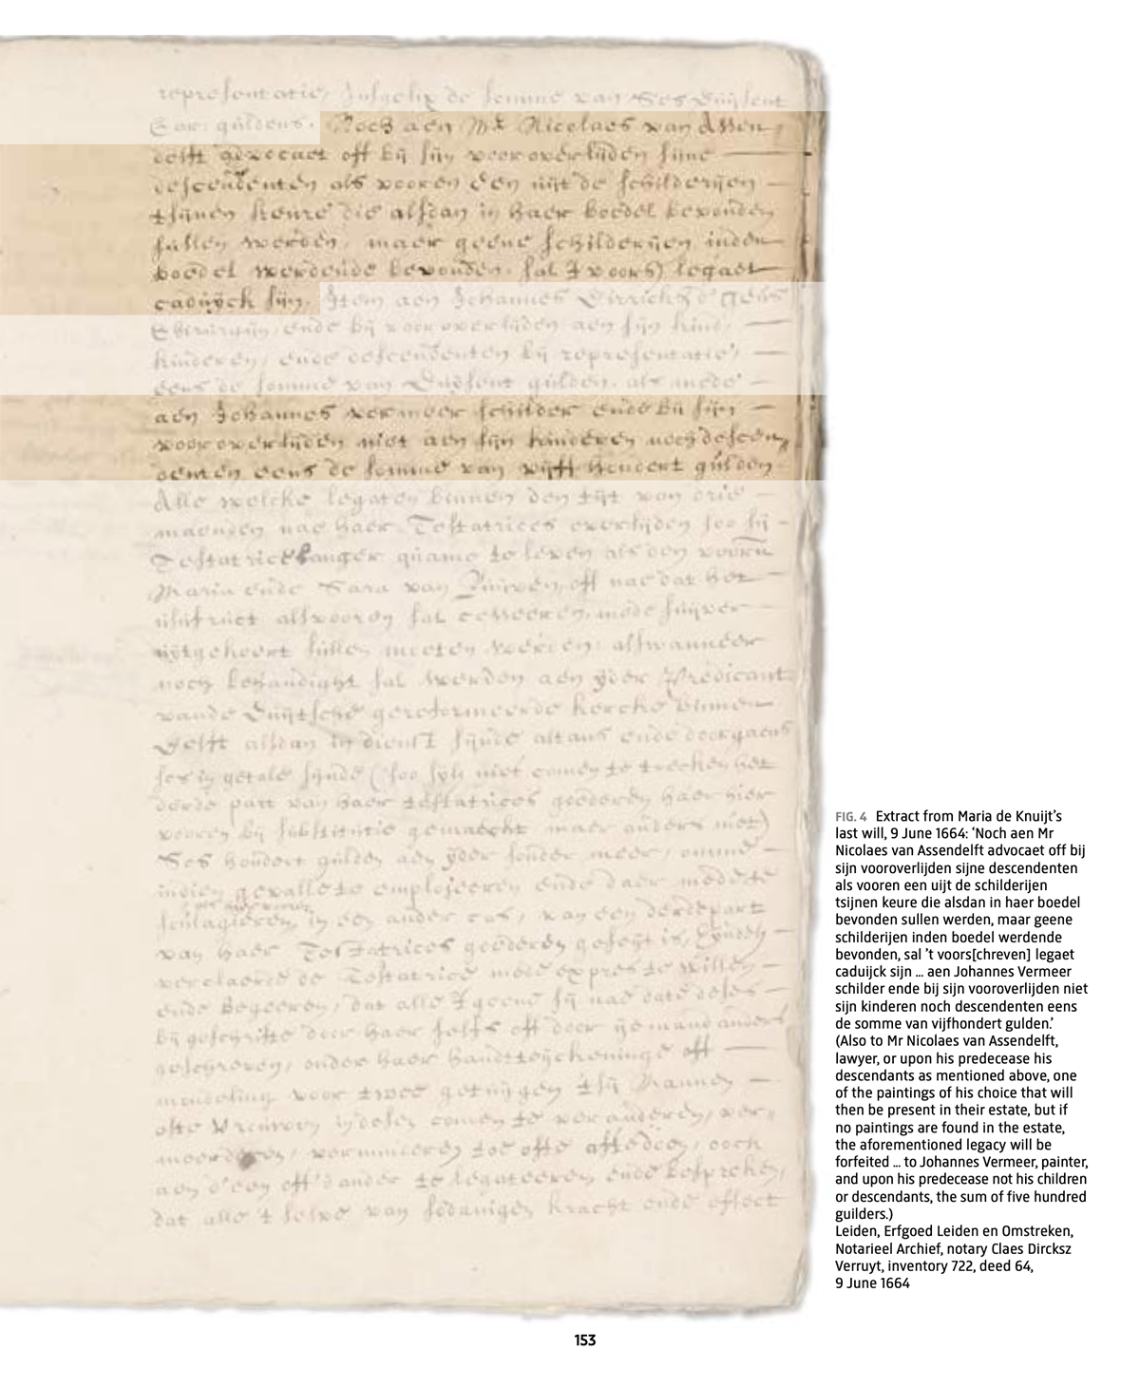 representatie, Insgelix de somme van Ses duijsent
Car: guldens. Noch aen Mr. Nicolaes van Assen,
delft advocaet off bij sijn vooroverlijden sijne
descendenten als vooren een uijt de schilderijen
tsijnen keure die alsdan in haer boedel bevonden
sullen werden, maer geene schilderijen inden
boedel werdende bevonden, sal 't voors) legaet
caduijck sijn. Item aen Johannes
Chirurgijn, ende bij vooroverlijden aen sijn kint,
kinderen, ende descendenten bij representatie,
eens de somme van duijsent gulden, als mede
aen Johannes vermeer schilder ende bij sijn
vooroverlijden niet aen sijn kinderen noch descen,
denten eens de somme van vijff hondert gulden
Alle welcke legaten binnen den tijt van drie
maenden nae haer Testatrices overlijden soo sij
Testatrice langer quame te leven als den voorn
Maria ende Sara van off nae dat het
usufruct alsvooren sal cesseeren, mede suijver
uijtgekeert sullen moeten werden: alswanneer
noch behandight sal werden aen yder Predicant
vande Duijtsche gereformeerde kercke binnen
Delft alsdan in dienst sijnde altans ende doorgaens
ses in getale sijnde (soo sijl: niet comen te trecken het
derde part van haer testatrices goederen haer hier
vooren bij substitutie gemaeckt maer anders niet)
Ses hondert gulden aen yder sonder meer, omme
indien gevalle te emploijeeren ende daer mede te
in een ander cas, van een derdepart
van haer Testatrices goederen geseijt is, Eijndel
verclaerde de Testatrice mede expres te willen
ende begeeren, dat alle 't geene sij nae date deses
bij geschrifte door haer selfs off door ijemand anders
geschreven, onder haer handtteijckeninge off
mondeling voor twee getuijgen 'tsij Mannen
ofte Vrouwen in desen comen te veranderen, ver,
meerderen, verminderen toe ofte affdoen, ooch
aen d'een off d'ander te legateeren ende bespreken,
dat alle 't selve van sodanigen kracht ende effect
FIG. 4 Extract from Maria de Knuijt's
last will, 9 June 1664: 'Noch aen Mr
Nicolaes van Assendelft advocaet off bij
sijn vooroverlijden sijne descendenten
als vooren een uijt de schilderijen
tsijnen keure die alsdan in haer boedel
bevonden sullen werden, maer geene
schilderijen inden boedel werdende
bevonden, sal 't voors[chreven] legaet
caduijck sijn … aen Johannes Vermeer
schilder ende bij sijn vooroverlijden niet
sijn kinderen noch descendenten eens
de somme van vijfhondert gulden.'
(Also to Mr Nicolaes van Assendelft,
lawyer, or upon his predecease his
descendants as mentioned above, one
of the paintings of his choice that will
then be present in their estate, but if
no paintings are found in the estate,
the aforementioned legacy will be
forfeited … to Johannes Vermeer, painter,
and upon his predecease not his children
or descendants, the sum of five hundred
guilders.)
Leiden, Erfgoed Leiden en Omstreken,
Notarieel Archief, notary Claes Dircksz
Verruyt, inventory 722, deed 64,
9 June 1664
153